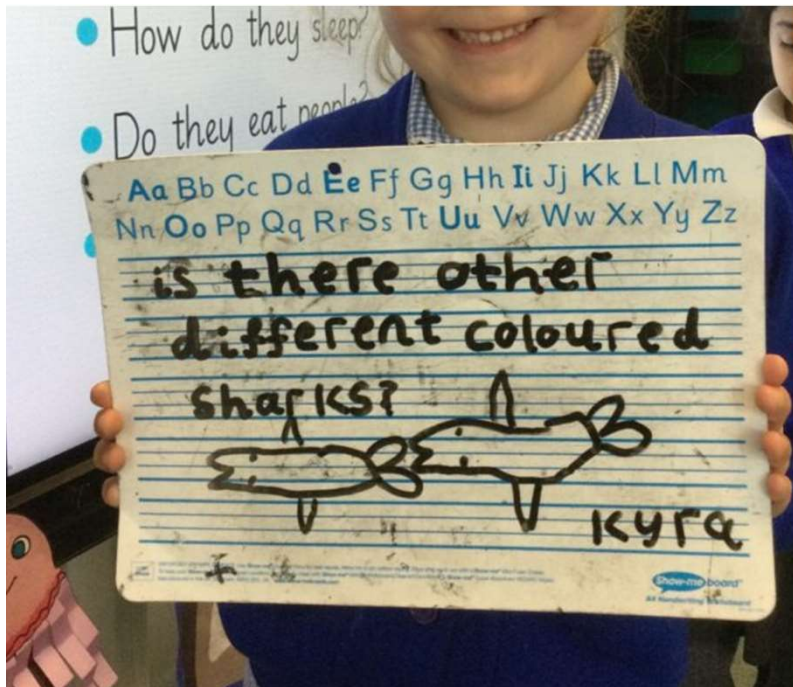 How do they sleep?
Do they eat people?
Aa Bb Cc Dd Ee Ff Gg Hh Ii Jj Kk Ll Mm
Nn Oo Pp Qq Rr Ss Tt Uu Vv Ww Xx Yy Zz
is there other
different coloured
sharks?
kyra
Show-me board
A4 Handwriting Whiteboard